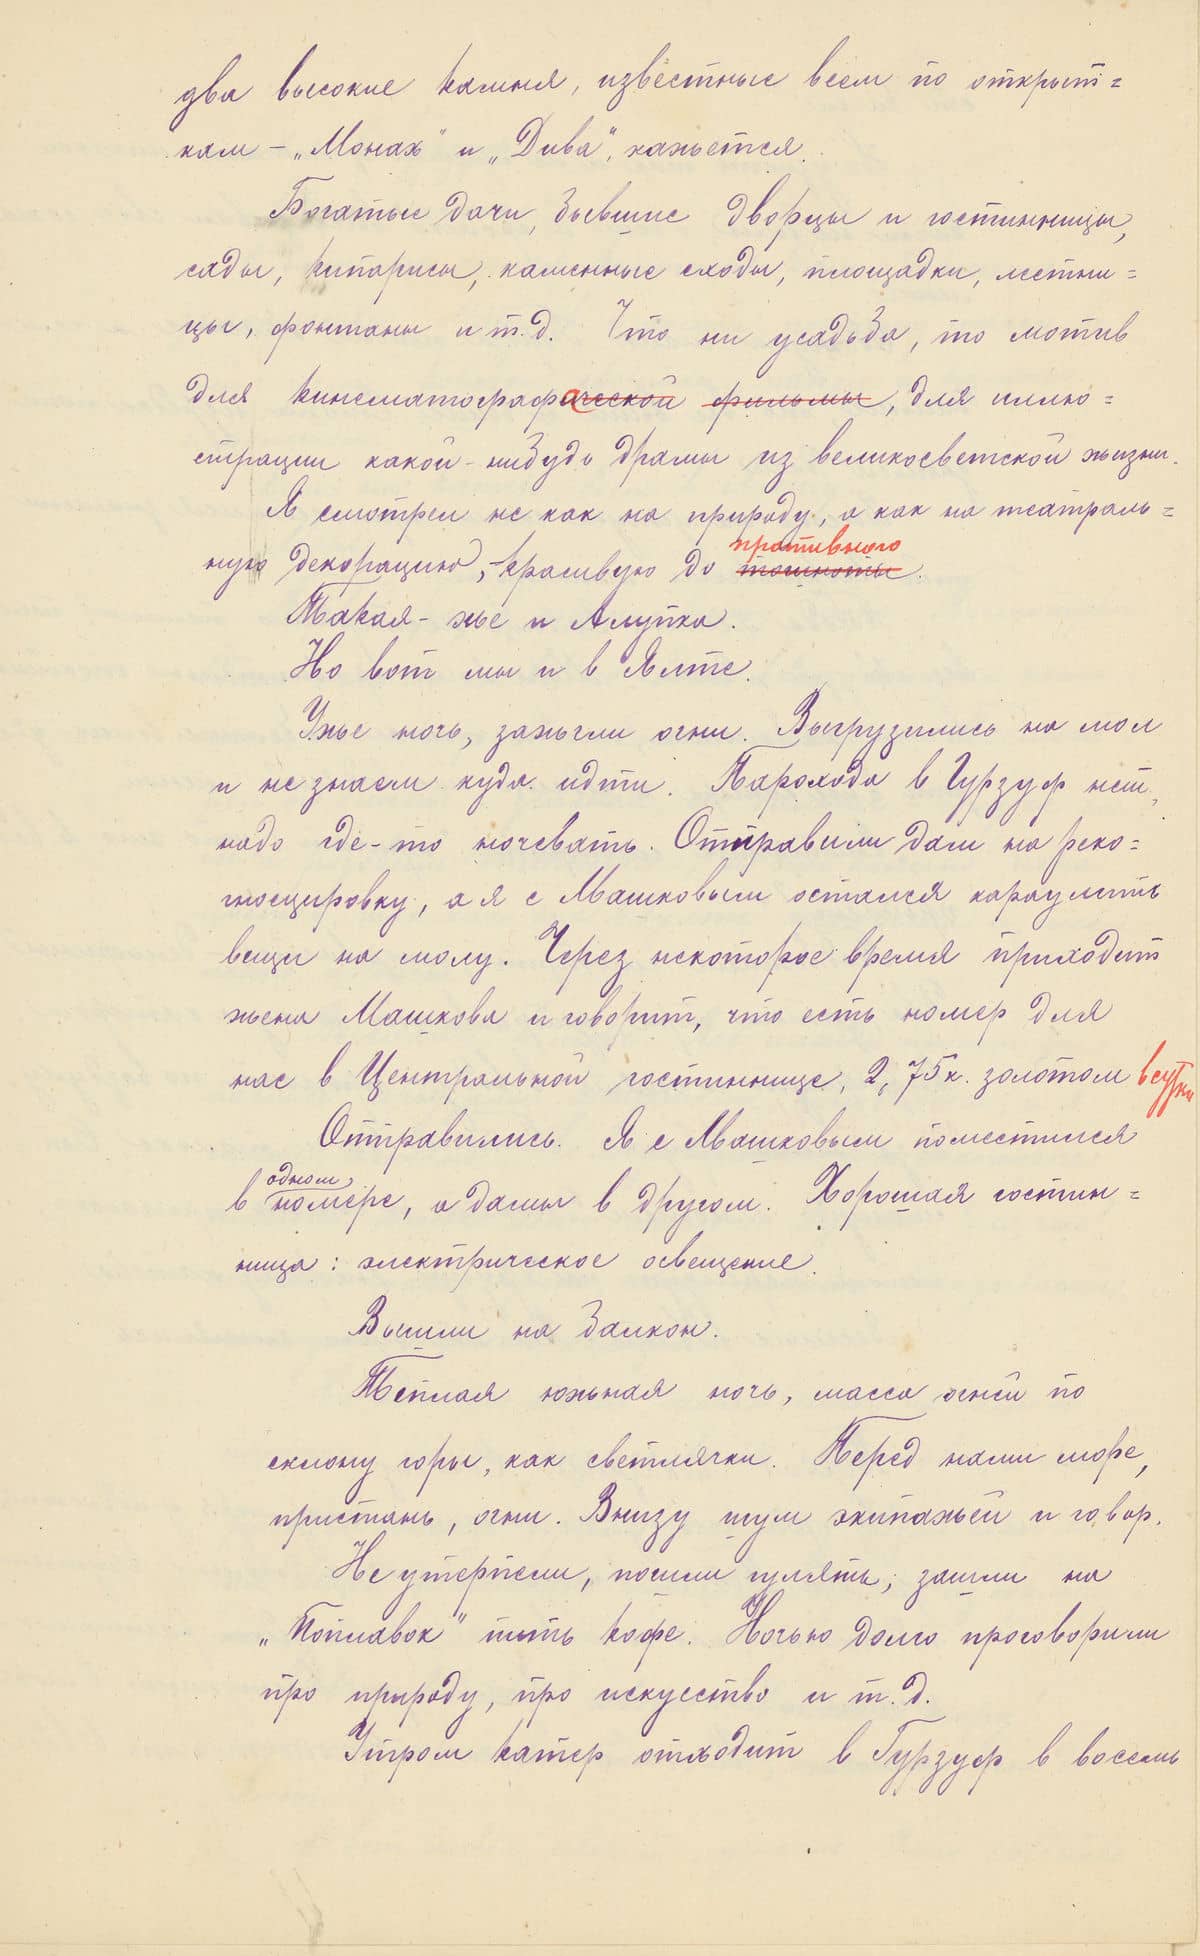 два высокие камня, известные всем по открыт=
кам – „Монах" и „Дива", кажется.
Богатые дачи, бывшие дворцы и гостинницы,
сады, кипарисы, каменные сходы, площадки, лестни=
цы, фонтаны и т.д. Что ни усадьба, то мотив
для кинематографаческой фильмы, для иллю=
страции какой-нибудь драмы из великосветской жизни.
Я смотрел не как на природу, а как на театраль=
противного
ную декорацию, – красивую до тошноты.
Такая-же и Алупка.
Но вот мы и в Ялте.
Уже ночь, зажгли огни. Выгрузились на мол
и не знаем куда идти. Парохода в Гурзуф нет,
надо где-то ночевать. Отправили дам на реко=
гносцировку, а я с Машковым остался караулить
вещи на молу. Через некоторое время приходит
жена Машкова и говорит, что есть номер для
нас в Центральной гостиннице, 2,75к. золотом в сутки
Отправились. Я с Машковым поместился
одном
в номере, а дамы в другом. Хорошая гостин=
ница: электрическое освещение.
Вышли на балкон.
Тёплая южная ночь, масса огней по
склону горы, как светлячки. Перед нами море,
пристань, огни. Внизу шум экипажей и говор.
Не утерпели, пошли гулять, зашли на
„Поплавок" пить кофе. Ночью долго проговорили
про природу, про искусство и т.д.
Утром катер отходит в Гурзуф в восемь